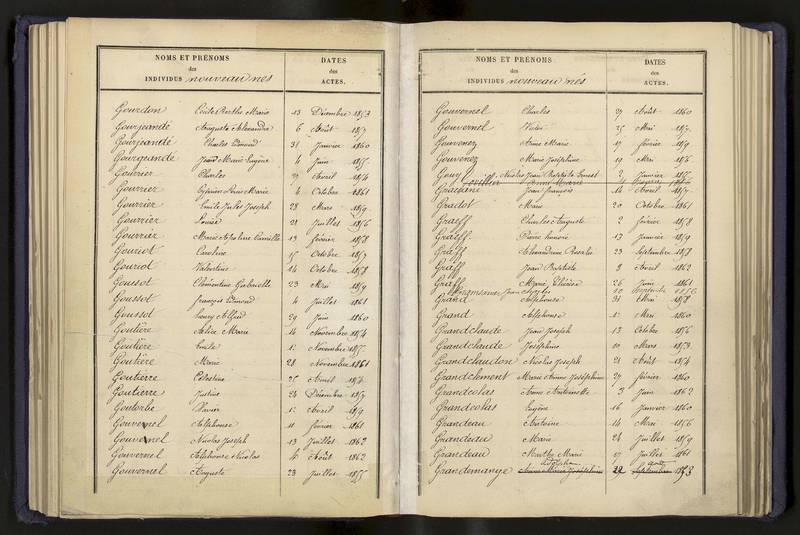 NOMS ET PRÉNOMS
des
INDIVIDUS nouveau nés
DATES
des
ACTES.
Gourdon Emile Berthe Marie 13 Décembre 1853
Gourjeandé Augusta Alexandre 6 Août 1857
Gourjeandé Charles Edmond 31 Janvier 1860
Gourgeandé Jean Marie Eugène 4 Juin 1855
Gourrier Charles Avril 1854
Gourrier Louis Marie 4 Octobre 1861
Gourrier Emile Jules Joseph 28 Mars 1859
Gourrier Louise 21 Juillet 1856
Gourrier Marie Apoline Camille 19 février 1858
Gouriot Caroline 15 Octobre 1857
Gouriot Valentine 14 Octobre 1858
Goussot Clémentine Gabrielle 23 Mai 1859
Goussot françois Edmond 4 Juillet 1861
Goussot henry Alfred 29 Juin 1860
Goutière Alice Marie 14 Novembre 1854
Goutière Emile 12 Novembre 1857
Goutière Marie 28 Novembre 1861
Goutièrre Célestine 25 Avril
Goutierre Justine 26 Décembre 1859
Goutorbe Xavier 12 Avril 1859
Gouvernel Alphonse 11 février 1861
Gouvernel Nicolas Joseph 13 Juillet 1862
Gouvernel Alphonse Nicolas 4 Août 1862
Gouvernel Auguste 23 Juillet 1855
NOMS ET PRÉNOMS
des
INDIVIDUS nouveau nés
DATES
des
ACTES.
Gouvernel Charles 27 Août 1860
Gouvernel Victor 25 Mai 1857
Gouvenez Anne Marie 17 février 1859
Gouvenez Marie Joséphine 19 Mai 1856
Gouy Nicolas Jean Baptiste Ernest 2 Janvier 1857
Anne Marie
Jean françois 14 Avril
Gradot Marie 20 Octobre 1861
Graeff Charles Auguste 2 février 1858
Graeff Pierre 13 Janvier 1859
Gräff Rosalie 23 Septembre 1858
Gräff Jean Baptiste 8 Avril 1862
Gräff Marie Thérèse 26 Juin 1861
Jean
Grand Alphonse 31 Mai 1858
Grand Alphonse 12 Mai 1860
Grandclaude Jean Joseph 13 Octobre 1856
Grandclaude Joséphine 10 Mars 1853
Grandclaudon Nicolas Joseph 21 Août 1854
Grandclement Marie Anne Joséphine 29 février 1860
Grandcolas Anne Antoinette 3 Juin 1862
Grandcolas Eugène 16 Janvier 1860
Grandeau Antoine 14 Mai 1856
Grandeau Marie 26 Juillet 1859
Grandeau Marthe Marie 17 Juillet 1861
Adolphe août
Grandemange Anne Marie Joséphine 22 Septembre 1853